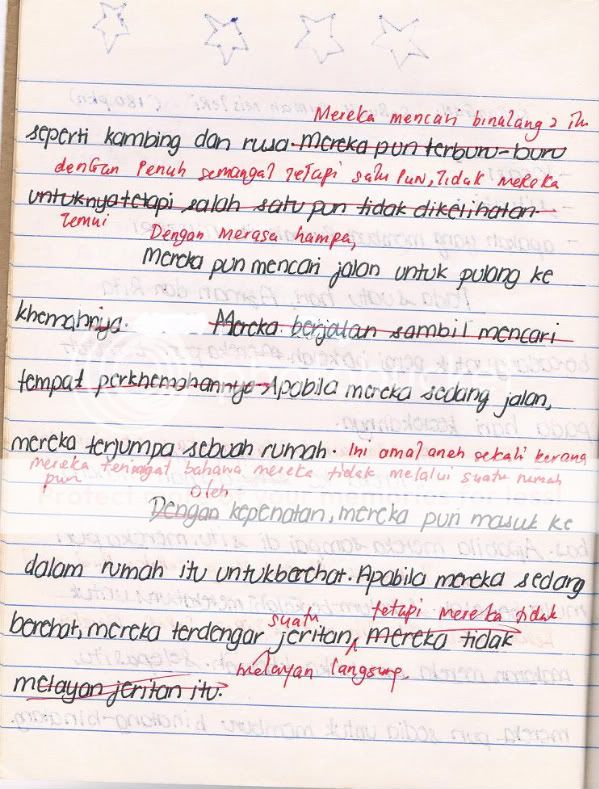 Mereka mencari binatang2 itu
seperti kambing dan rusa. Mereka pun terburu-buru
dengan penuh semangat tetapi satu pun, tidak mereka
untuknya tetapi salah satu pun tidak dikelihatan.
temui Dengan merasa hampa,
Mereka pun mencari jalan untuk pulang ke
khemahnya. Mereka berjalan sambil mencari
tempat perkhemahannya. Apabila mereka sedang jalan,
mereka terjumpa sebuah rumah. Ini amat aneh sekali kerana
mereka teringat bahawa mereka tidak melalui suatu rumah
pun oleh
Dengan kepenatan, mereka pun masuk ke
dalam rumah itu untuk berehat. Apabila mereka sedang
suatu tetapi mereka tidak
berehat, mereka terdengar jeritan, mereka tidak
melayan langsung.
melayan jeritan itu.